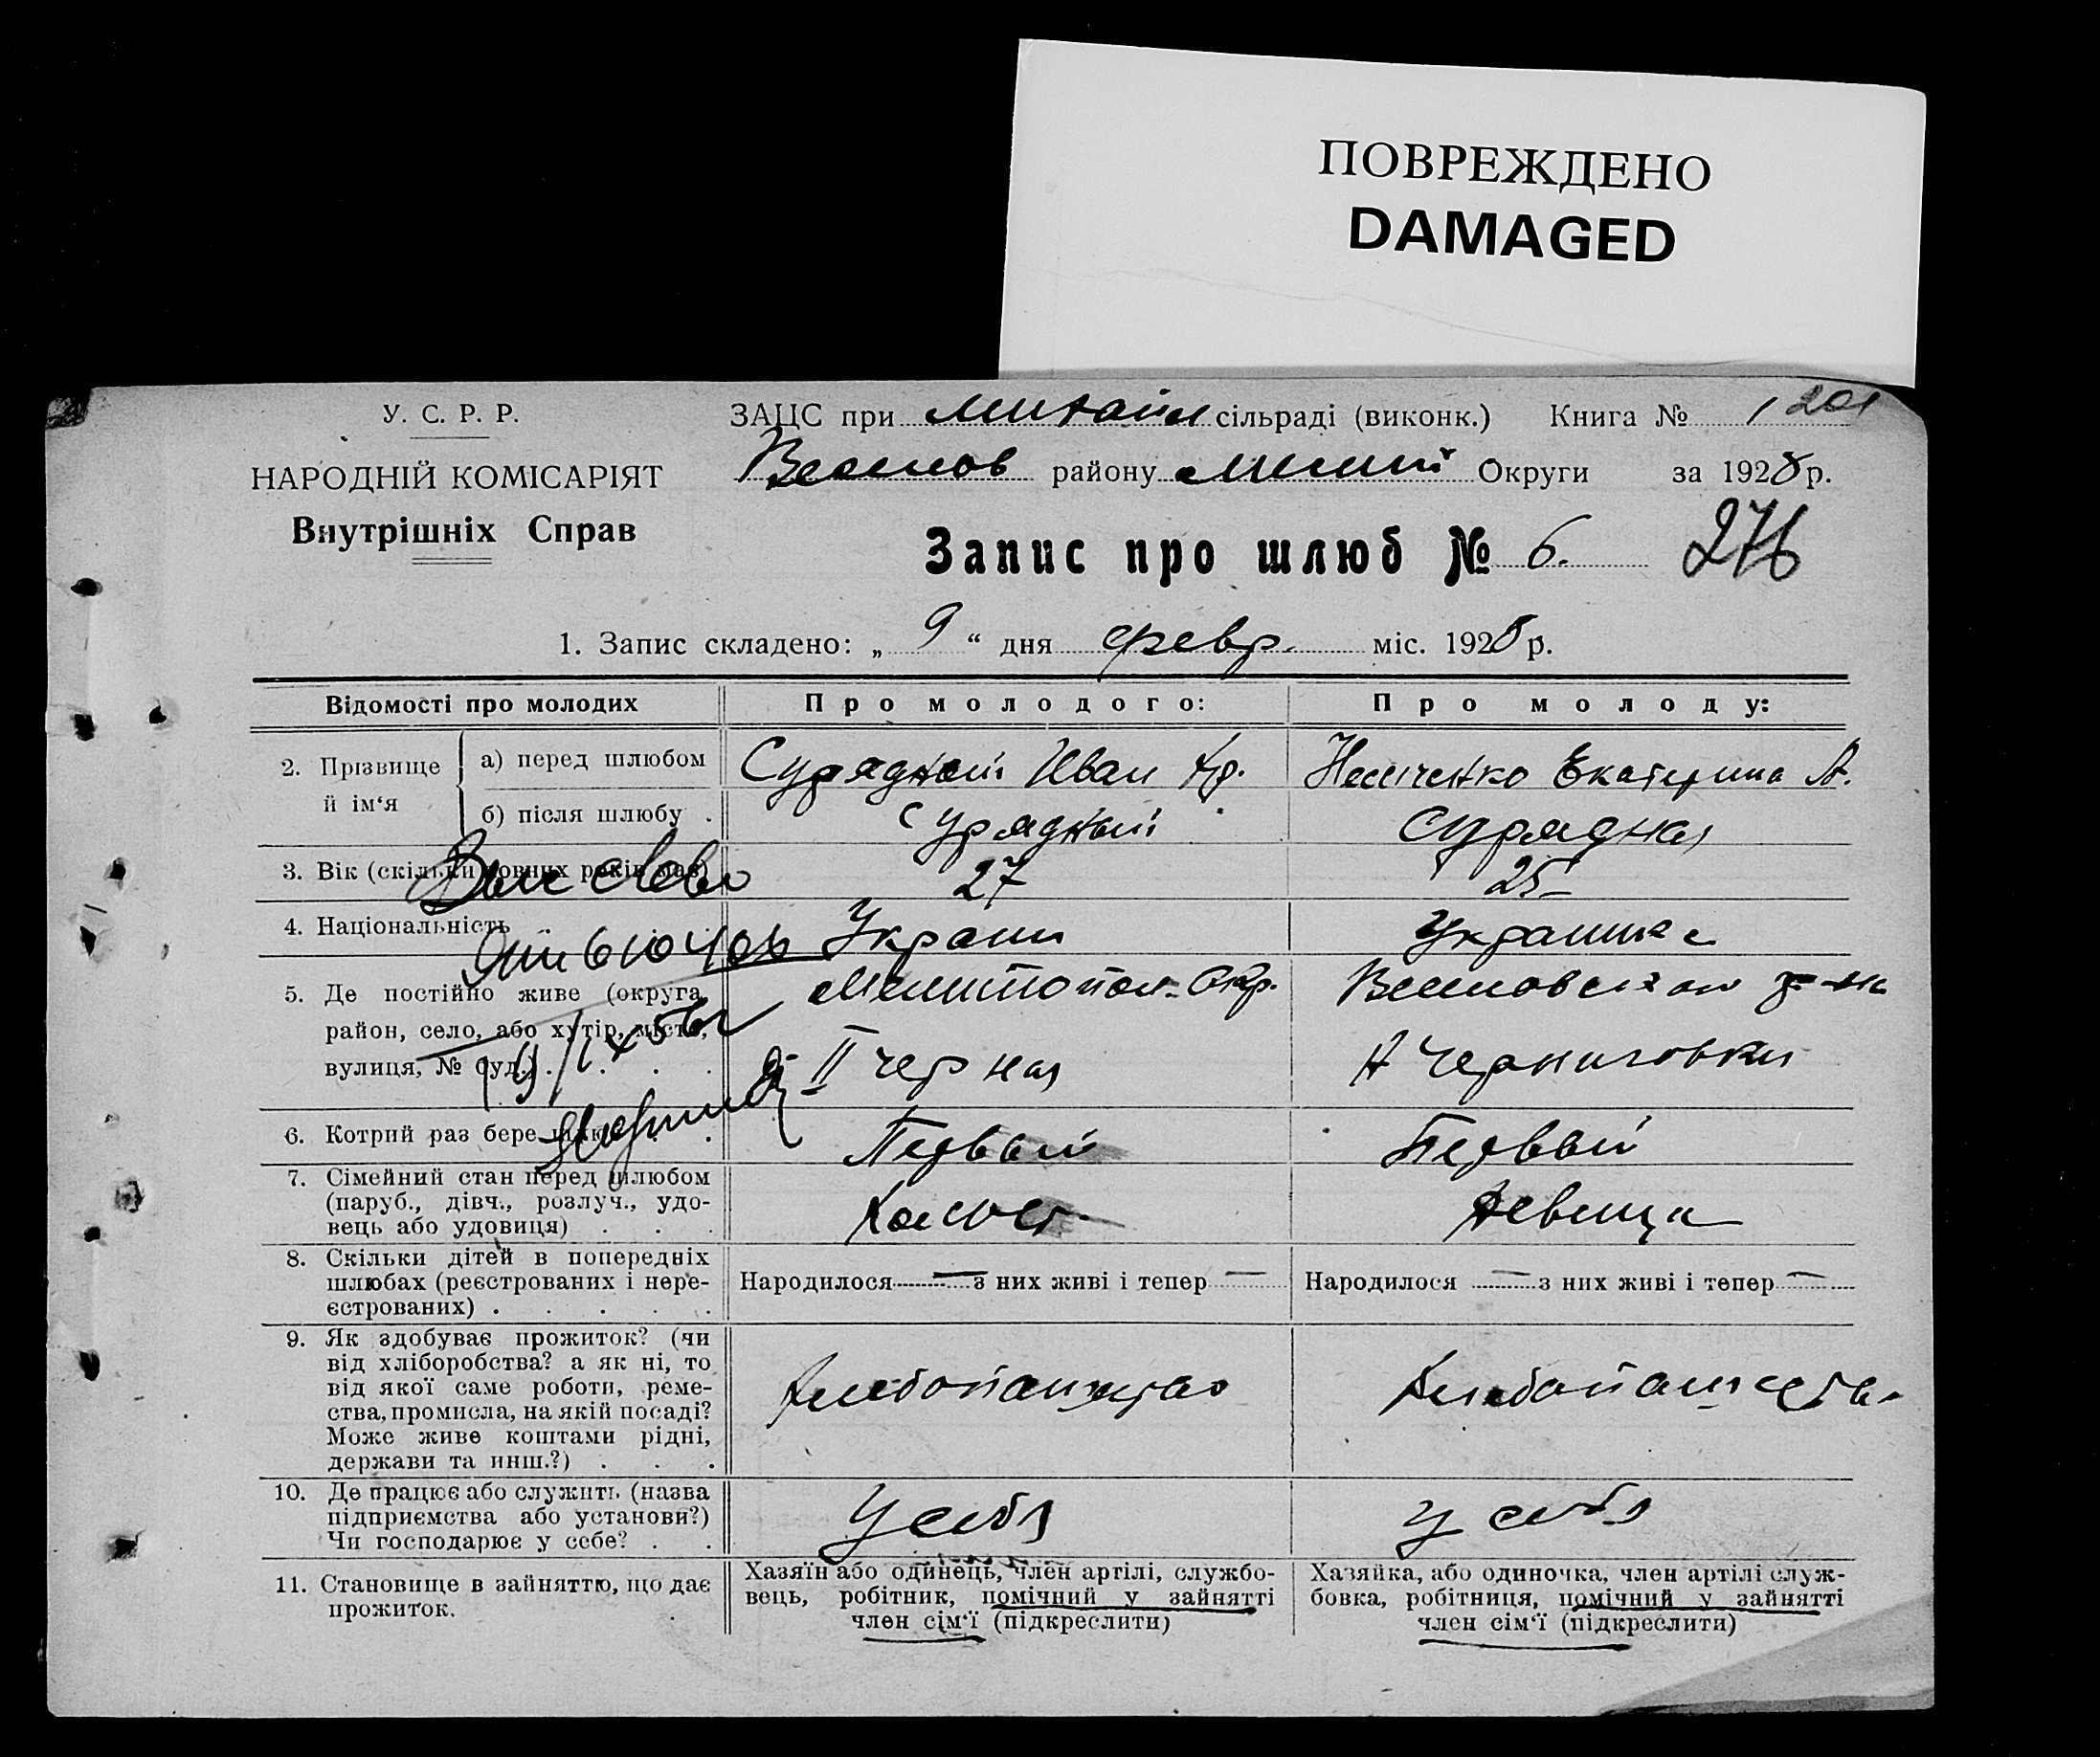 ПОВРЕЖДЕНО
DAMAGED
У. С. Р. Р.
НАРОДНІЙ КОМІСАРІЯТ
Внутрішніх Справ
ЗАЦС при Михайл сільраді (виконк.) Книга № 1 201
Веселов району Мелит Округи за 1928 р.
Запис про шлюб № 6. 276
1. Запис складено: „ 9 “ дня февр. міс. 1928 р.
Відомості про молодих
Про молодого:
Про молоду:
2. Прізвище й ім‘я
а) перед шлюбом
Сурядный Иван
Немченко Екатерина А.
б) після шлюбу .
Сурядный
Сурядная
3. Вік (скільки повних років має)
27
25
4. Національність
Украин
Украинка
5. Де постійно живе (округа,
район, село, або хутір, місто,
вулиця, № буд.) . . . .
Мелитопол. Окр.
II Черная
Веселовского р-на
Черниговка
6. Котрий раз бере шлюб . .
Первый
Первый
7. Сімейний стан перед шлюбом
(паруб., дівч., розлуч., удо-
вець або удовиця) . . .
Холост.
Девица
8. Скільки дітей в попередніх
шлюбах (реєстрованих і нере-
єстрованих) . . . . .
Народилося — з них живі і тепер —
Народилося — з них живі і тепер —
9. Як здобуває прожиток? (чи
від хліборобства? а як ні, то
від якої саме роботи, реме-
ства, промисла, на якій посаді?
Може живе коштами рідні,
держави та инш.?) . . .
Хлебопашество
Хлебопашество
10. Де працює або служить (назва
підприємства або установи?)
Чи господарює у себе? . .
У себя
У себя
11. Становище в зайняттю, що дає
прожиток.
Хазяїн або одинець, член артілі, службо-
вець, робітник, помічний у зайнятті
член сім‘ї (підкреслити)
Хазяйка, або одиночка, член артілі служ-
бовка, робітниця, помічний у зайнятті
член сім‘ї (підкреслити)